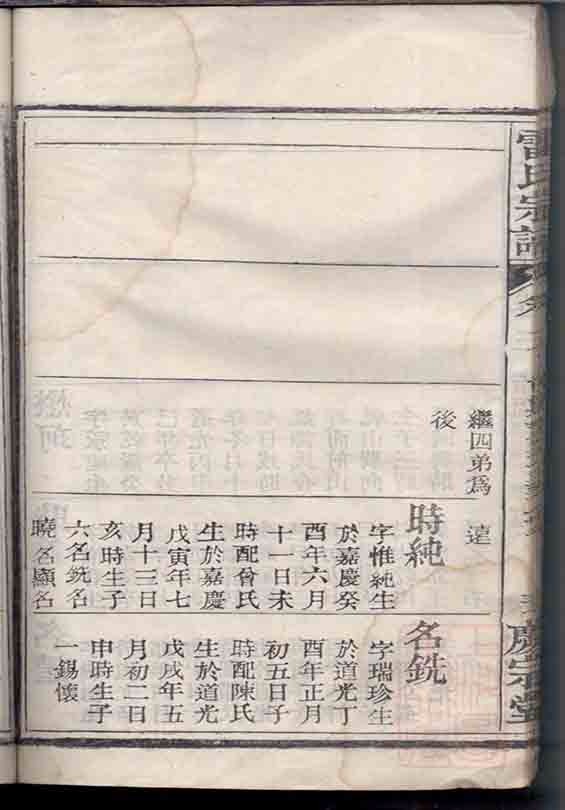 雷氏宗譜
慶宗堂
繼四弟爲
後
遠
時純
字惟純生
於嘉慶癸
酉年六月
十一日未
時配曾氏
生於嘉慶
戊寅年七
月十三日
亥時生子
六名銑名
曉名顯名
名銑
字瑞珍生
於道光丁
酉年正月
初五日子
時配陳氏
生於道光
戊戌年五
月初二日
申時生子
一錫懷